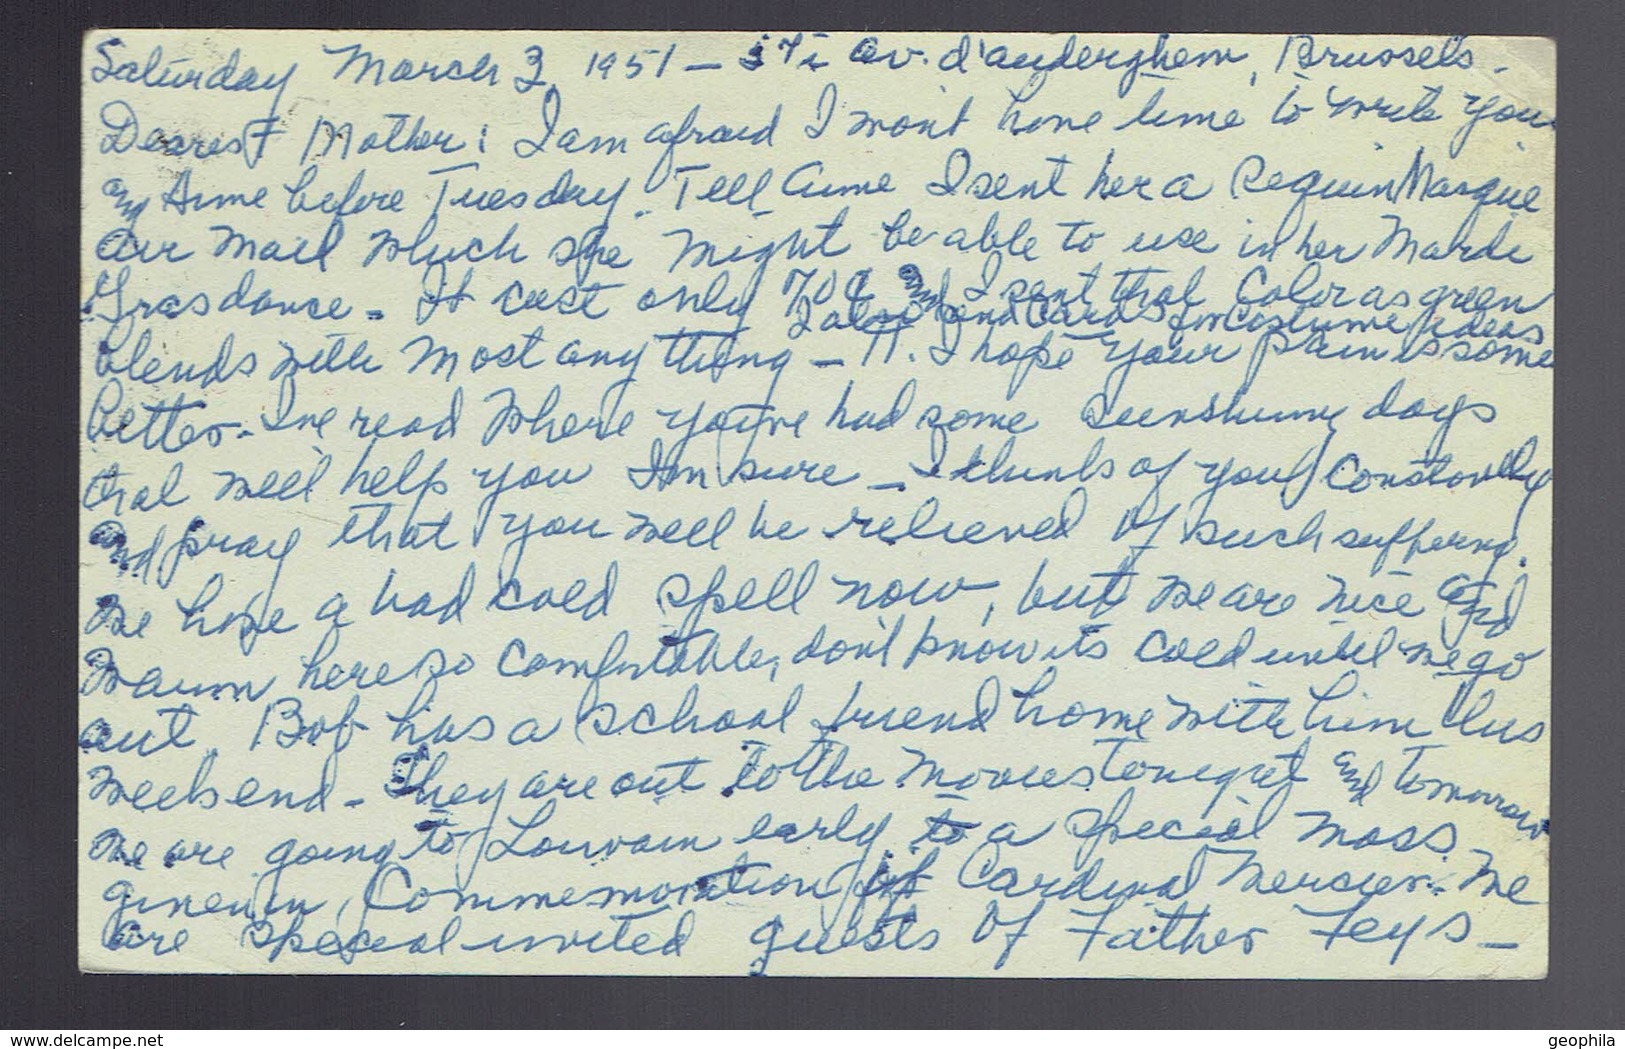 Saturday March 3, 1951 — av. d'auderghem, Brussels.
Dearest Mother: I am afraid I won't have time to write you
and Anne before Tuesday. Tell Anne I sent her a Sequin Masque
air mail which she might be able to use in her Mardi
Gras dance - It cost only 70¢ and I sent that color as green
I also send cards for costume ideas
blends with most anything — I hope your pain is some
better. I've read where you've had some sunshiny days
that will help you I'm sure — I think of you constantly
and pray that you will be relieved of such suffering.
We have a bad cold spell now, but we are nice and
warm here so comfortable, don't know its cold until we go
out. Bob has a school friend home with him this
weekend - They are out to the movies tonight and tomorrow
we are going to Louvain early to a special mass
given in Commemoration of Cardinal Mercier. We
are special invited guests of Father Feys —
www.delcampe.net
geophila